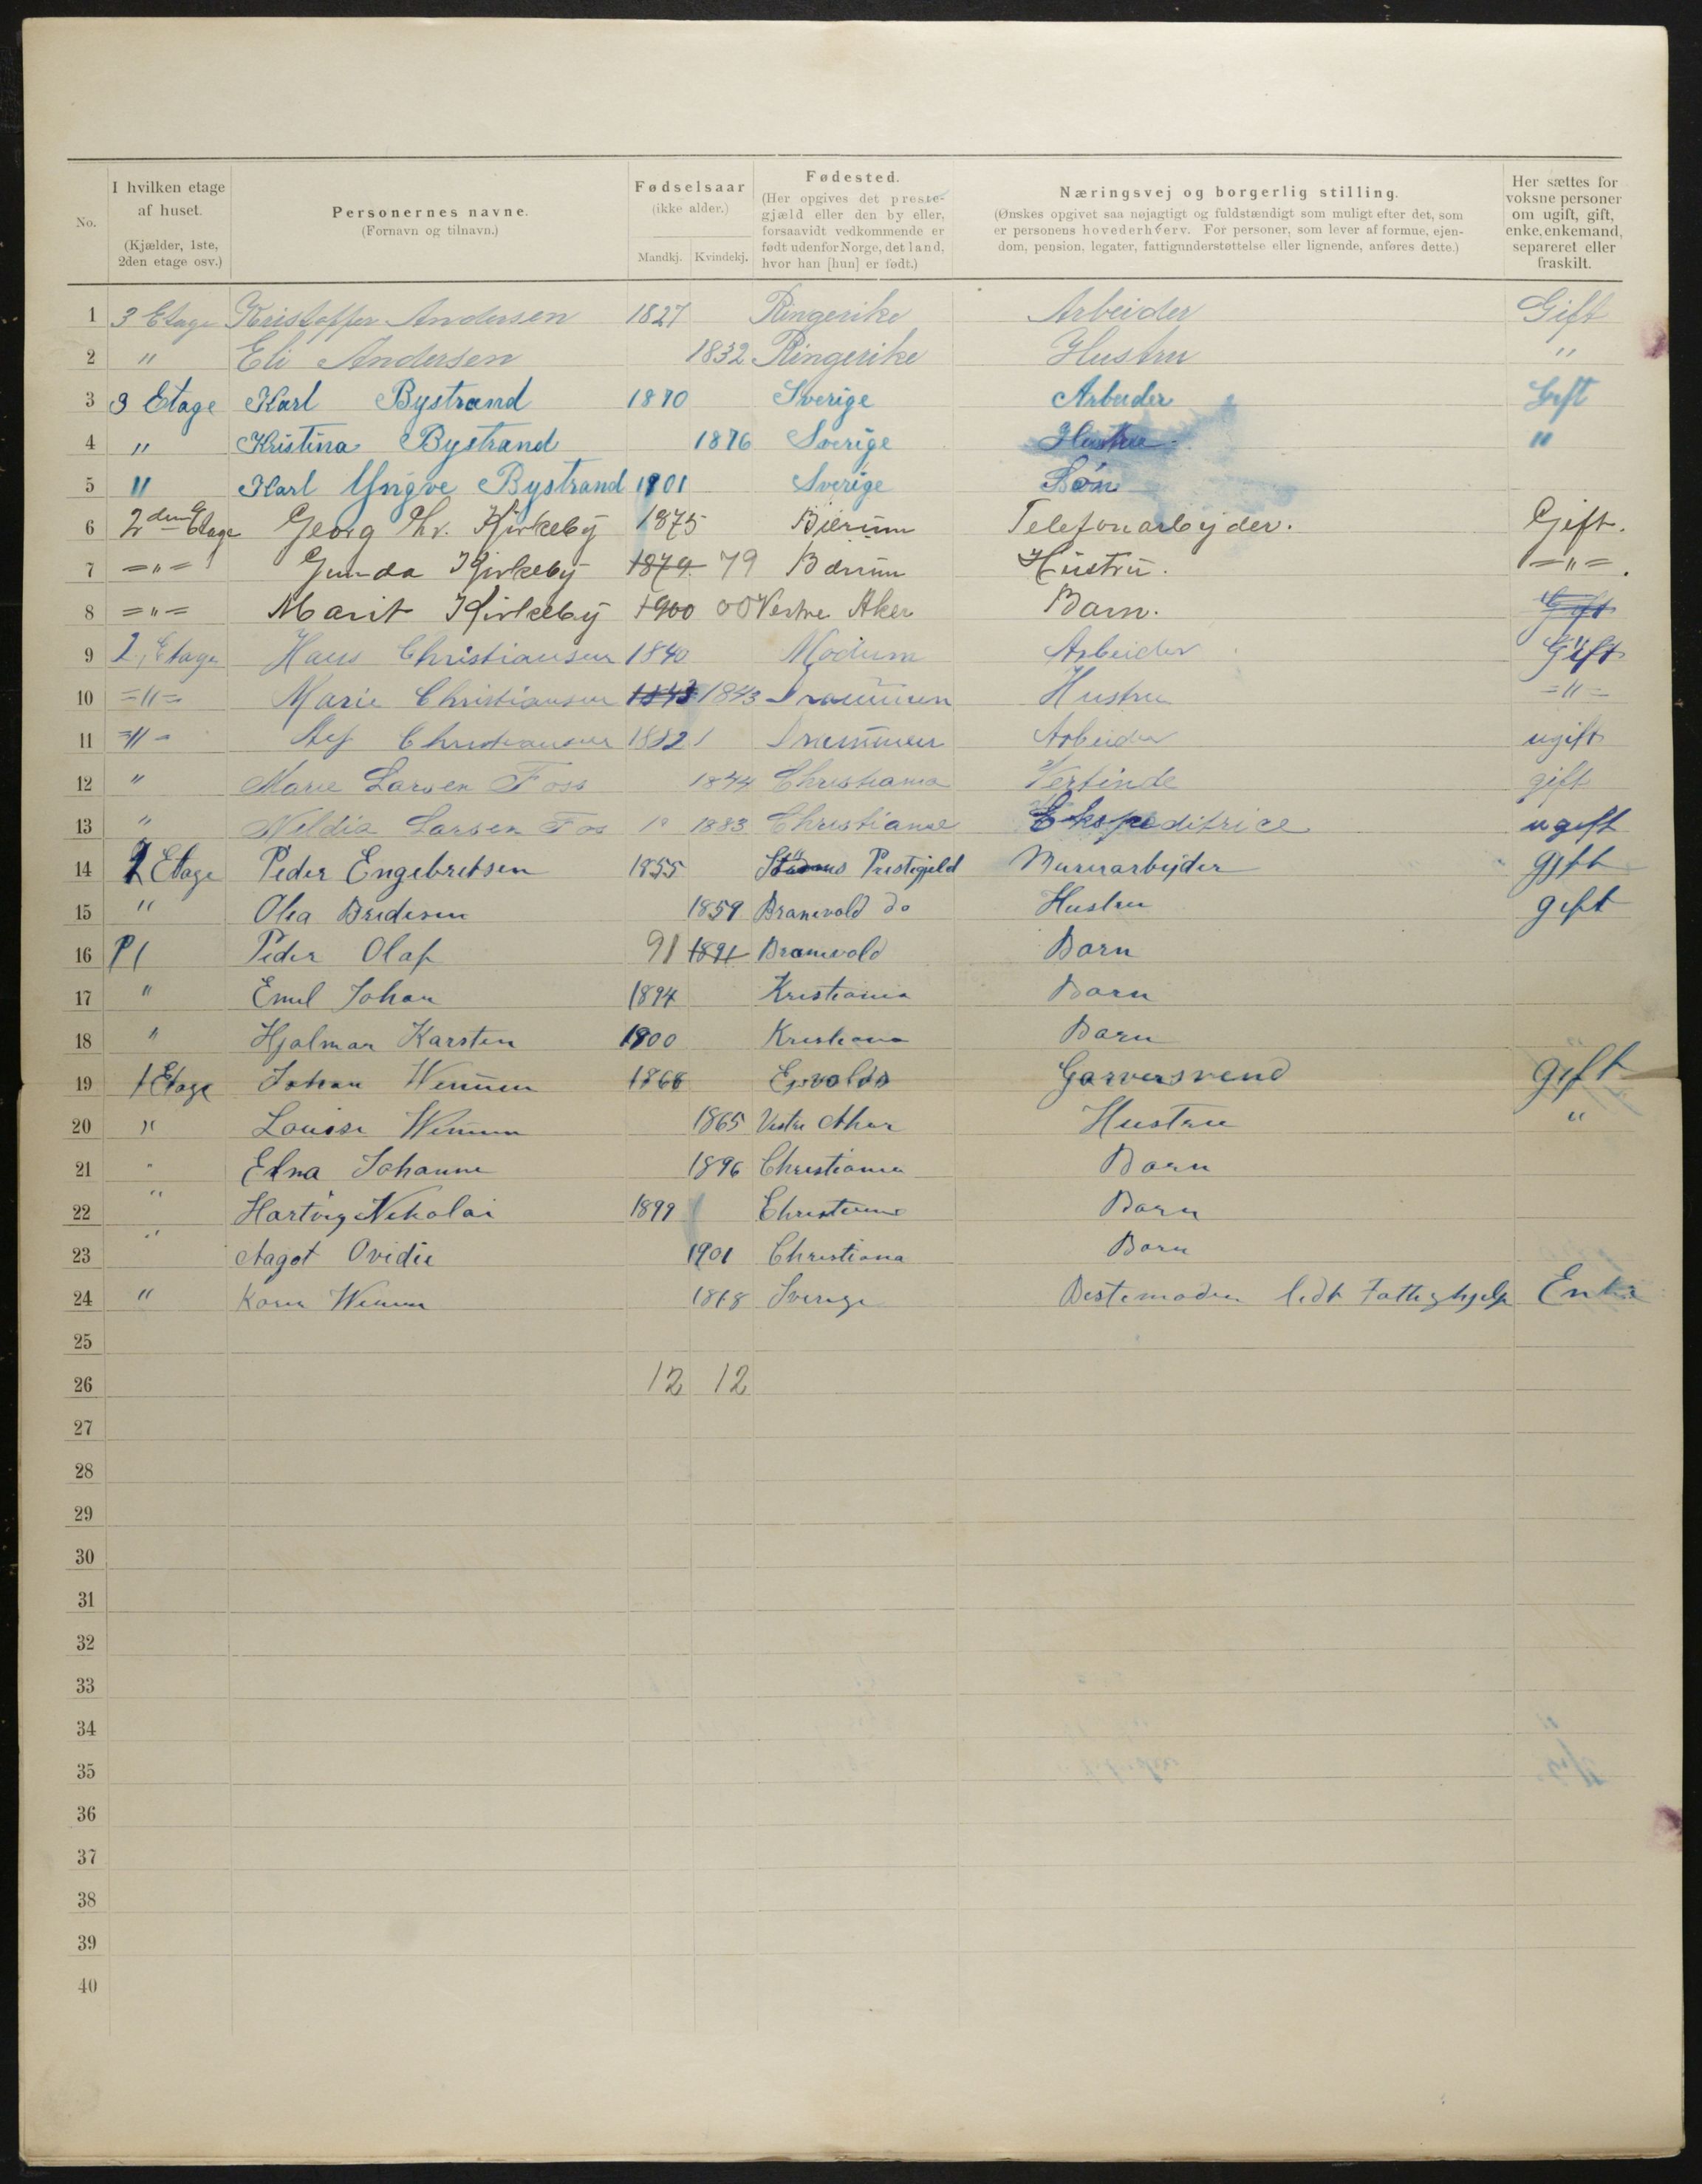 No.
I hvilken etage af huset.
(Kjælder, 1ste, 2den etage osv.)
Personernes navne.
(Fornavn og tilnavn.)
Fødselsaar
(ikke alder.)
Mandkj. Kvindekj.
Fødested.
(Her opgives det preste-
gjæld eller den by eller,
forsaavidt vedkommende er
født udenfor Norge, det land,
hvor han [hun] er født.)
Næringsvej og borgerlig stilling.
(Ønskes opgivet saa nøjagtigt og fuldstændigt som muligt efter det, som
er personens hovederhverv. For personer, som lever af formue, ejen-
dom, pension, legater, fattigunderstøttelse eller lignende, anføres dette.)
Her sættes for
voksne personer
om ugift, gift,
enke, enkemand,
separeret eller
fraskilt.
1 3 Etage Kristoffer Andersen 1827 Ringerike Arbeider Gift
2 " Eli Andersen 1832 Ringerike Hustru "
3 3 Etage Karl Bystrand 1870 Sverige Arbeider Gift
4 " Kristina Bystrand 1876 Sverige Hustru "
5 " Karl Yngve Bystrand 1901 Sverige Søn
6 2den Etage Georg Chr. Kirkeby 1875 Bærum Telefonarbejder. Gift.
7 ="= Gunda Kirkeby 1879 79 Bærum Hustru. ="=.
8 ="= Marit Kirkeby 1900 00 Vestre Aker Barn. Gift
9 2. Etage Hans Christiansen 1840 Modum Arbeider Gift
10 ="= Marie Christiansen 1843 1843 Drammen Hustru ="=
11 ="= Christiansen 1882 Drammen Arbeider ugift
12 " Marie Larsen Foss 1844 Christiania Vertinde gift
13 " Larsen Fos 1883 Christiania Ekspeditrice ugift
14 1 Etage Peder Engebretsen 1855 Prestegjeld Murerarbejder gift
15 " Olea 1859 Branevold do Hustru gift
16 Peder Olaf 91 1891 Branevold Barn
17 " Emil Johan 1894 Kristiania Barn
18 " Hjalmar Karsten 1900 Kristiania Barn
19 1 Etage Johan 1868 Garversvend gift
20 " Louise 1865 Vestre Aker Hustru "
21 " Elna Johanne 1896 Christiania Barn
22 " Hartvig Nikolai 1899 Christiania Barn
23 " Aagot Ovidie 1901 Christiana Barn
24 " Karen 1818 Sverige Bestemoder lidt Fattighjelp Enke
25
26 12 12
27
28
29
30
31
32
33
34
35
36
37
38
39
40